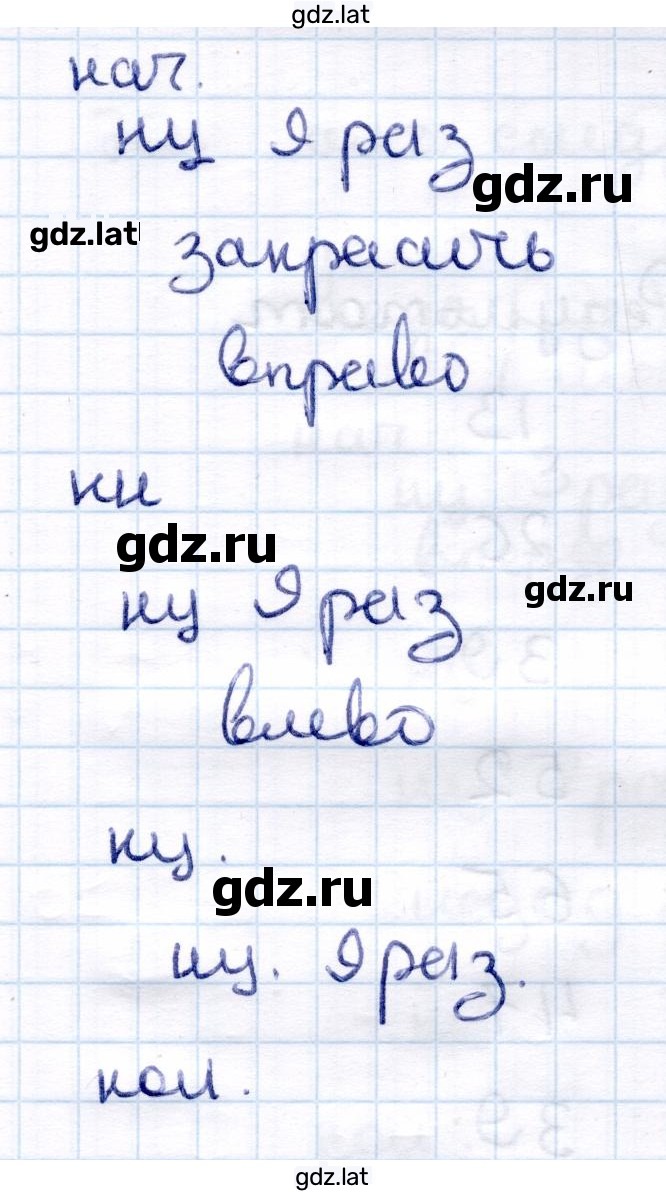 gdz.lat
нач.
нц 9 раз
gdz.ru
gdz.lat
закрасить
вправо
кц
gdz.ru
нц 9 раз
gdz.ru
влево
кц.
gdz.ru
нц. 9 раз.
кон.
gdz.lat